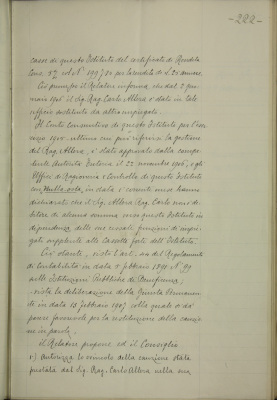 -222-
casse di questo Istituto del certificato di Rendita
Cons. 5% al N° 199780 per la rendita di L. 20 annue.
Ciò premesso il Relatore informa che dal 2 gen
naio 1906 il Sig. Rag. Carlo Albera è stato in tale
ufficio sostituito da altro impiegato.
Il Conto Consuntivo di questo Istituto per l'eser
cizio 1905 ultimo cui può riferirsi la gestione
del Rag. Albera, è stato approvato dalla compe
tente Autorità Tutoria il 22 novembre 1906, e gli
Uffici di Ragioneria e Controllo di questo Istituto
con Nulla osta, in data 5 corrente mese hanno
dichiarato che il Sig. Albera Rag. Carlo non è de
bitore di alcuna somma verso questo Istituto in
dipendenza delle sue cessate funzioni di impie
gato supplente alla Cassetta forte dell'Istituto.
Ciò stante, visto l'art. del Regolamento
di Contabilità in data 5 febbraio 1891 N° 99
sulle Istituzioni Pubbliche di Beneficenza,
vista la deliberazione della Giunta Permanen
te in data 15 febbraio 1907 colla quale si dà
parere favorevole per la restituzione della cauzio
ne in parola,
il Relatore propone ed il Consiglio
1°) Autorizza lo svincolo della cauzione stata
prestata dal Sig. Rag. Carlo Albera nella sua